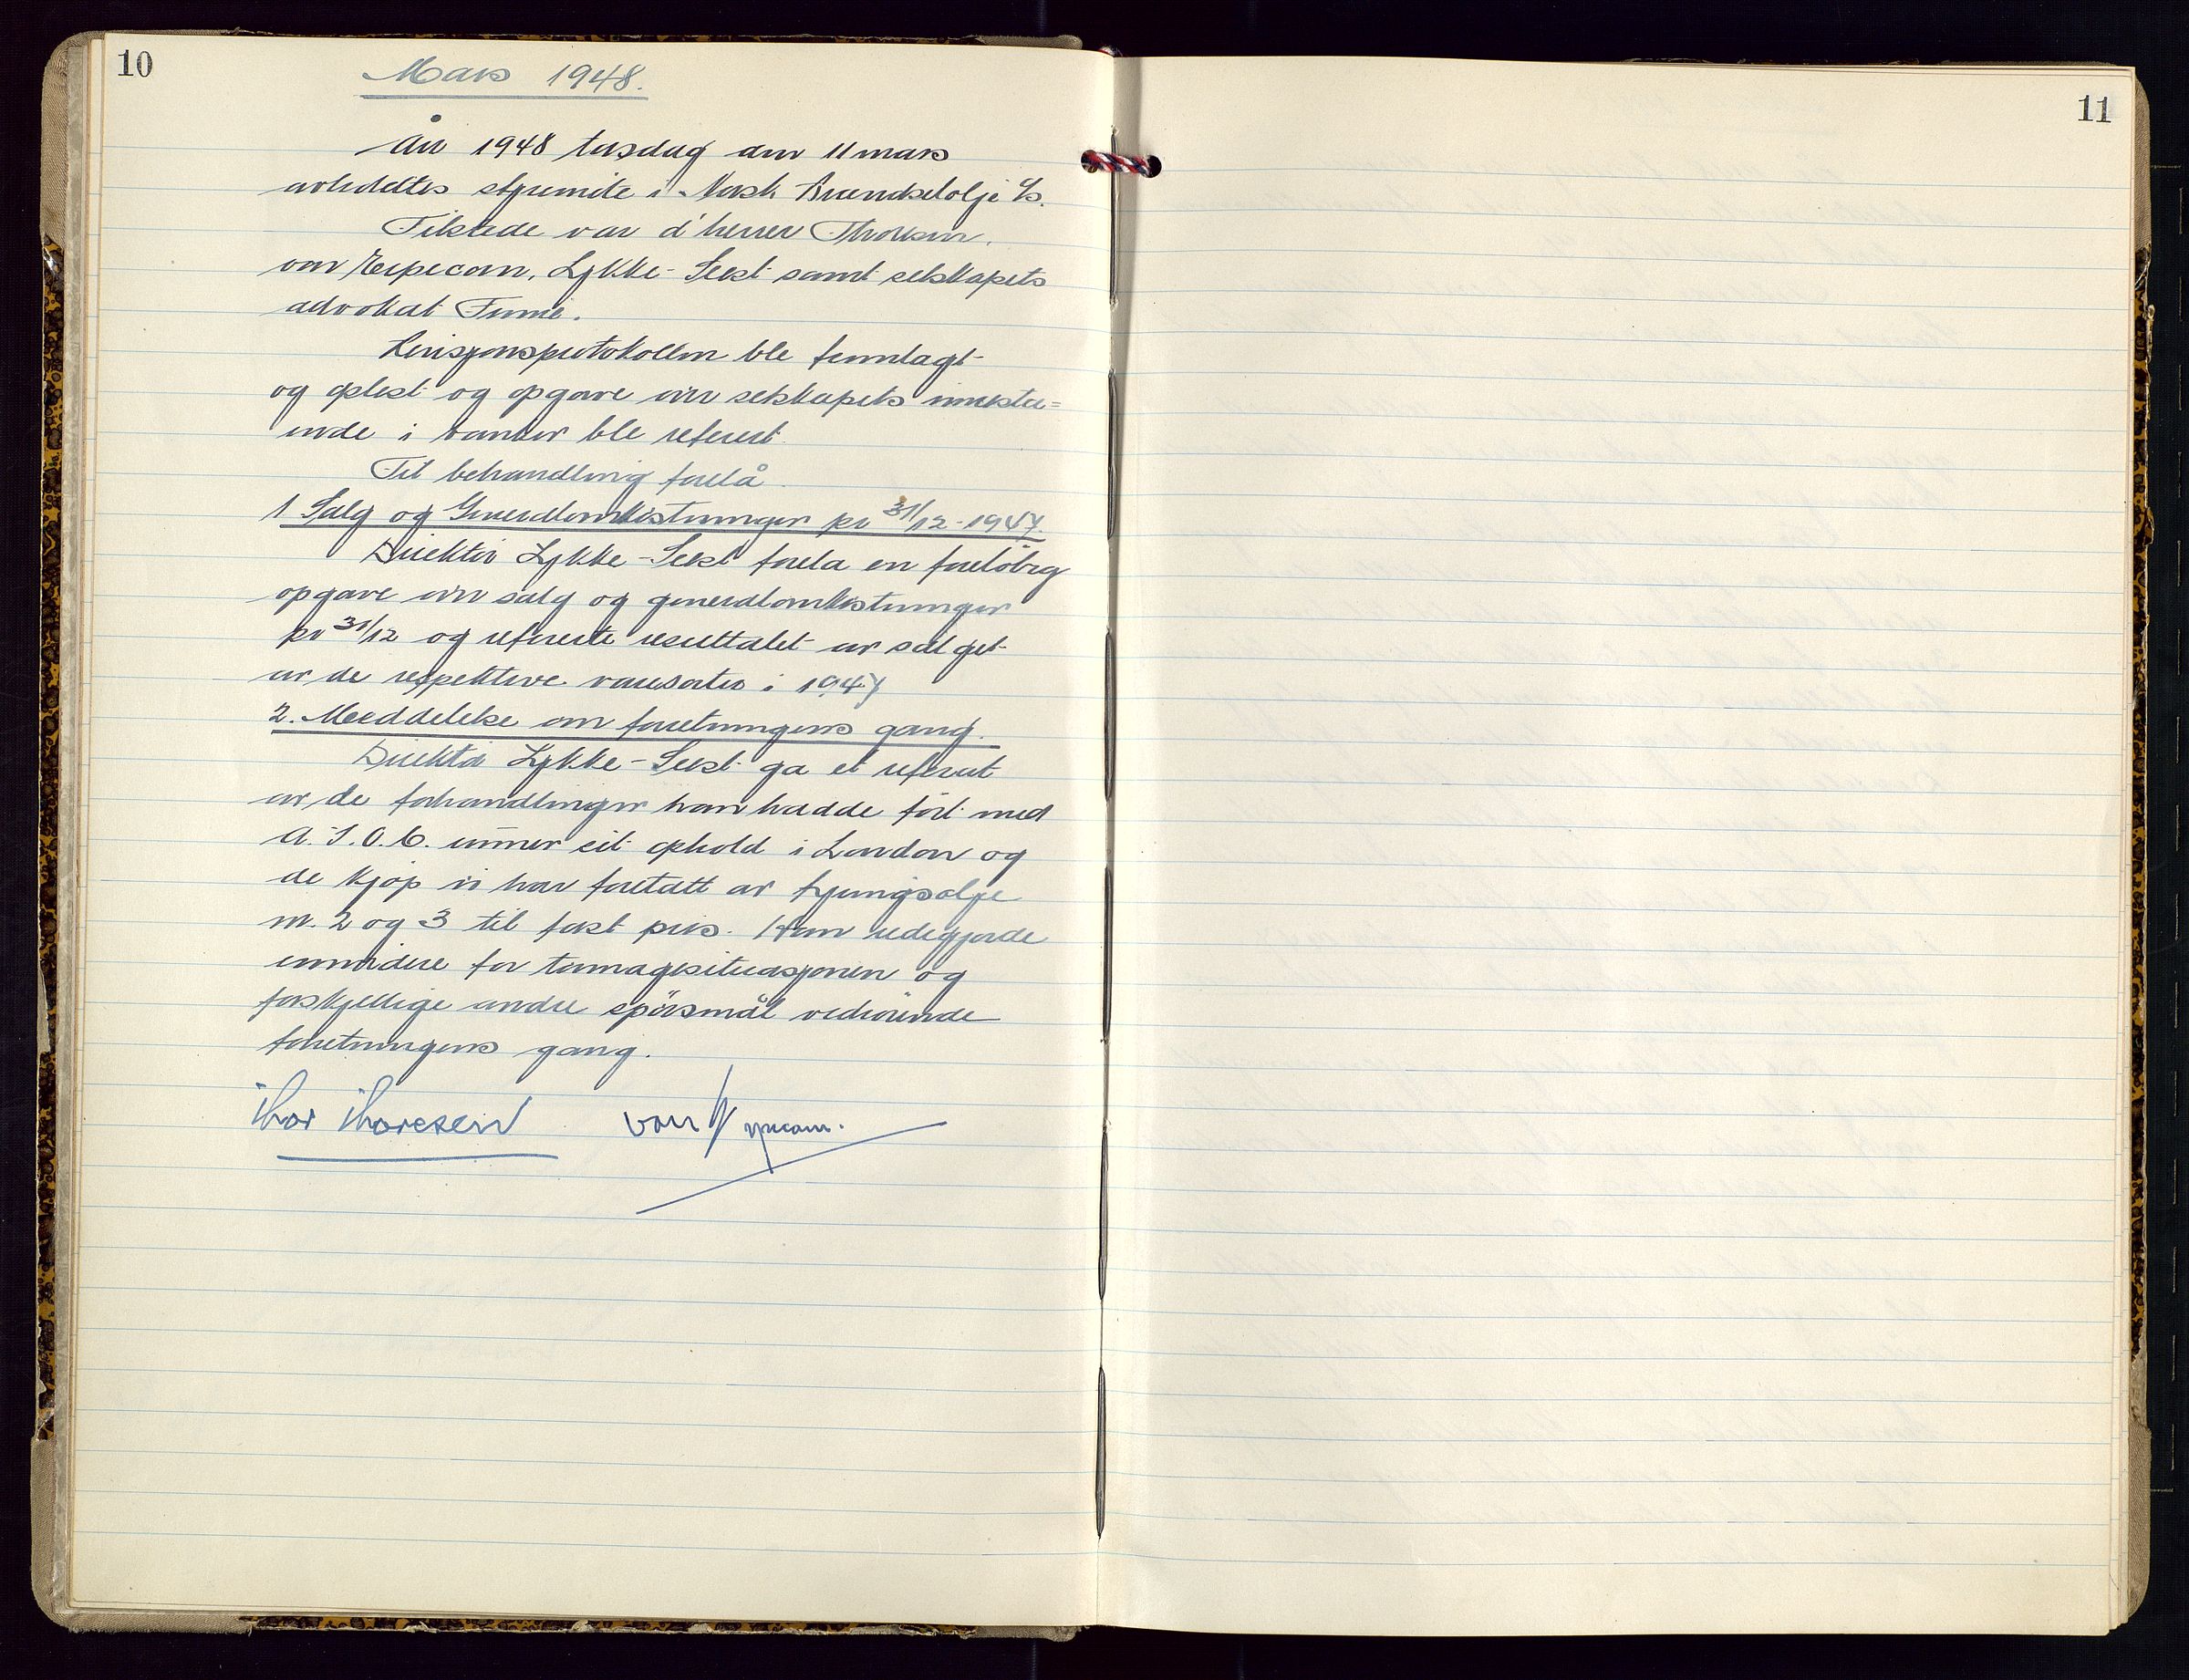 10
Mars 1948.
År 1948 torsdag den 11 mars
avholdtes styremöte i Norsk Brændselolje A/s.
Tilstede var d'herrer Thoresen,
von Erpecom, Lykke-Seest samt selskapets
advokat
Revisjonsprotokollen ble fremlagt
og oplest og opgave över selskapets innestå=
ende i banker ble referert.
Til behandling forelå.
1 Salg og Generalomkostninger pr 31/12-1947.
Direktör Lykke-Seest forela en forelöbig
opgave över salg og generalomkostninger
pr 31/12 og refererte resultatet av salget
av de respektive varesorter i 1947
2. Meddelelse om forretningens gang.
Direktör Lykke-Seest ga et referat
av de forhandlinger han hadde fört med
A.I.O.C. under sit ophold i London og
de kjöp vi har foretatt av fyringsolje
nr. 2 og 3 til fast pris. Han redegjorde
ennvidere for tonnagesituasjonen og
forskjellige andre spörsmål vedrörende
forretningens gang.
Thor Thoresen von Erpecom.
11